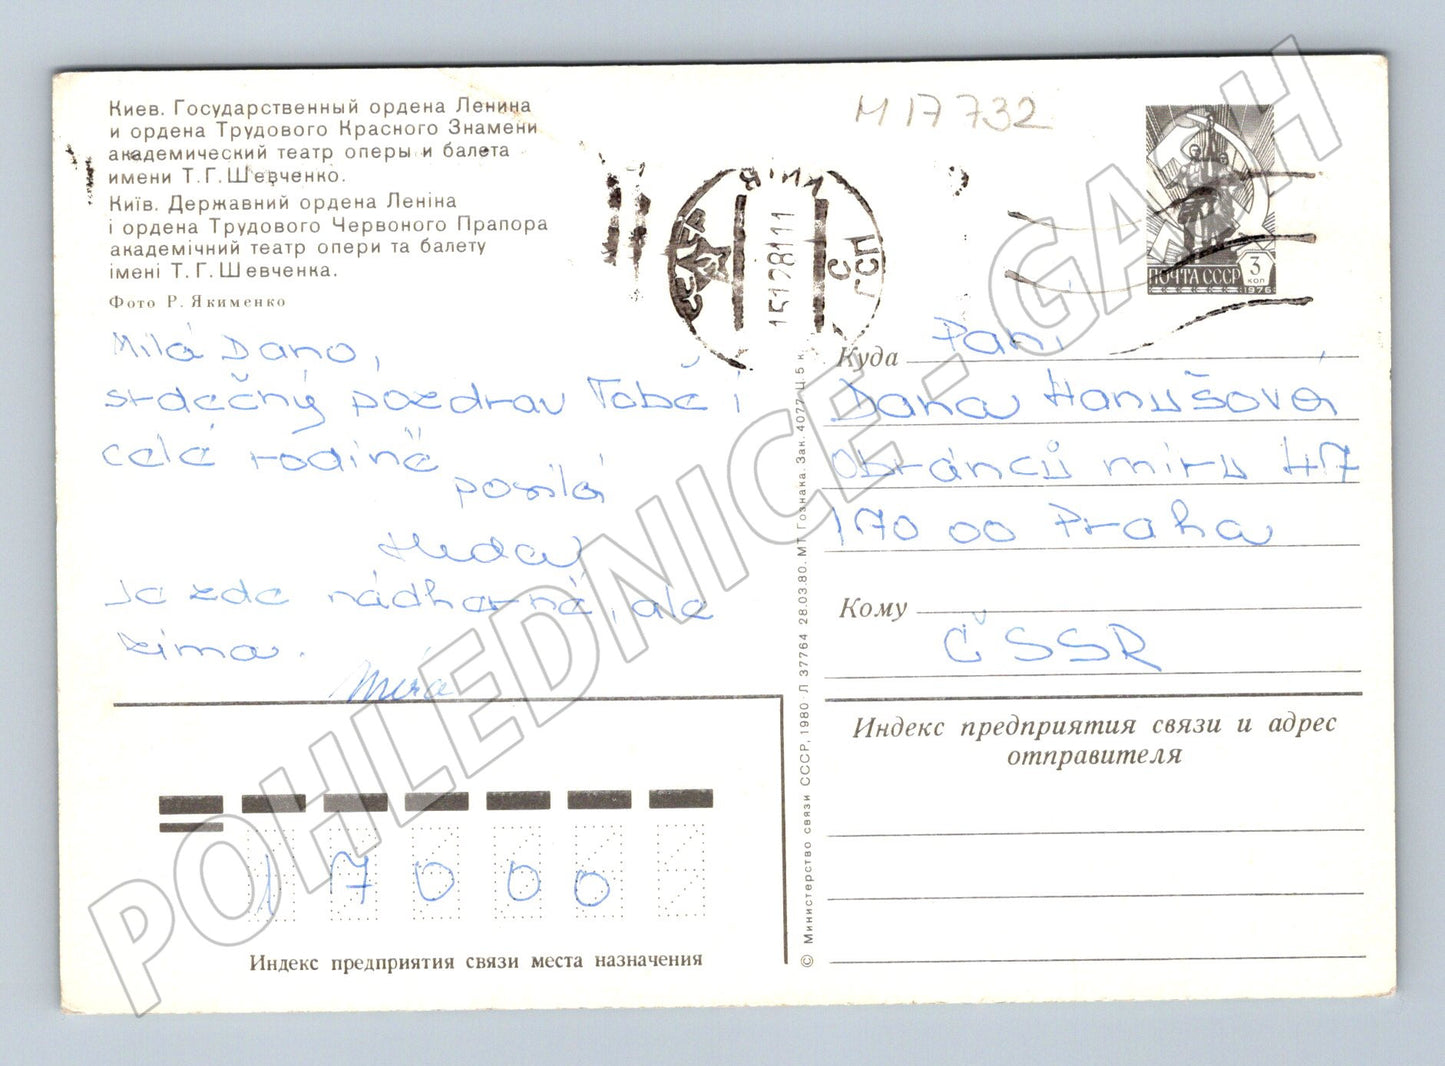 Киев. Государственный ордена Ленина
и ордена Трудового Красного Знамени
академический театр оперы и балета
имени Т.Г.Шевченко.
Київ. Державний ордена Леніна
і ордена Трудового Червоного Прапора
академічний театр опери та балету
імені Т.Г.Шевченка.
Фото Р. Якименко
M 17 732
ПОЧТА СССР 3 коп
1976
Milá Dano,
srdečný pozdrav Tobě i
celé rodině
posílá
Je zde nádherně, ale
zima.
Míra
Куда Paní
Dana Hanušová
Obránců míru 47
170 00 Praha
Кому
ČSSR
Индекс предприятия связи и адрес
отправителя
© Министерство связи СССР, 1980 Л 37764 28.03.80. МТ Гознака. Зак. 4077. Ц. 5 к.
17000
Индекс предприятия связи места назначения
POHLEDNICE - GASH